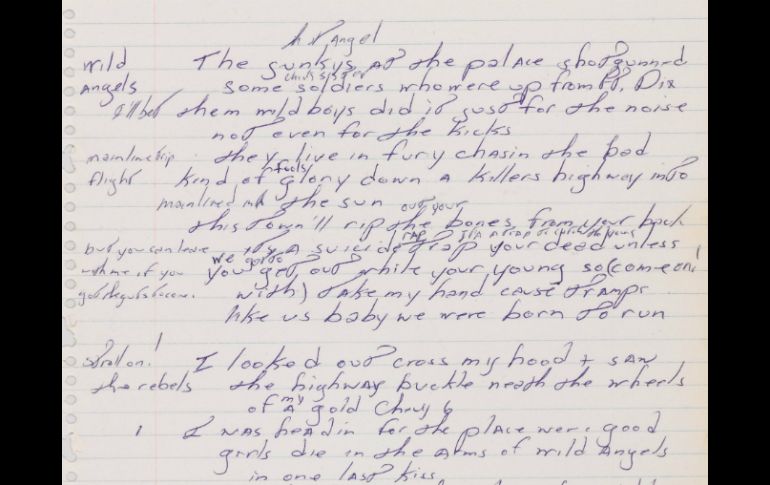 Angel
Wild The junkys at the palace shotgunned
Angels some soldiers who were up from Ft. Dix
I'll bet them wild boys did it just for the noise
not even for the kicks
mainline trip they live in fury chasin the bad
fools
flight kind of glory down a killers highway into
mainlined the sun out your
this town'll rip the bones from your back
rap its a trap to catch the young
but you can leave its a suicide trap your dead unless
we gotta
with me if you you get out while your young so (come on!
with) take my hand cause tramps
like us baby we were born to run
stroll on! I looked out cross my hood + saw
the rebels the highway buckle neath the wheels
my
of a gold Chevy 6
I was headin for the place were good
girls die in the arms of wild Angels
in one last kiss